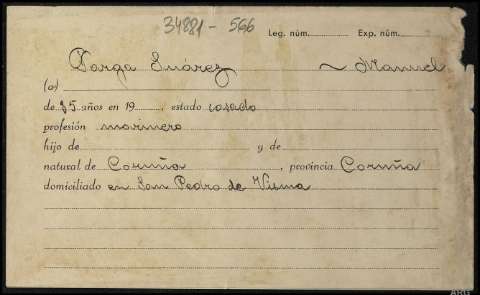 34881 - 566
Leg. núm. Exp. núm.
Varga Suárez ~ Manuel
(a)
de 35 años en 19, estado casado
profesión marinero
hijo de y de
natural de Coruña, provincia Coruña
domiciliado en San Pedro de Visma
ARG